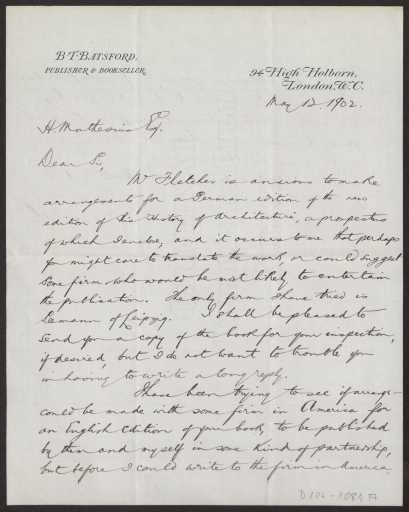 B.T. BATSFORD.
PUBLISHER & BOOKSELLER.
94 High Holborn,
London, W.C.
May 12. 1902.
H Muthesius Esq.
Dear Sir,
Mr Fletcher is anxious to make
arrangements for a German edition of the new
edition of his "History of Architecture", a prospectus
of which I enclose, and it occurs to me that perhaps
you might care to translate the work, or could suggest
some firm who would be most likely to entertain
the publication. The only firm I have tried is
of Leipzig. I shall be pleased to
send you a copy of the book for your inspection,
if desired, but I do not want to trouble you
in having to write a long reply.
I have been trying to see if arrange-
could be made with some firm in America for
an English Edition of your book, to be published
by them and myself in some kind of partnership,
but before I could write to the firm in America
D 102-1081 A